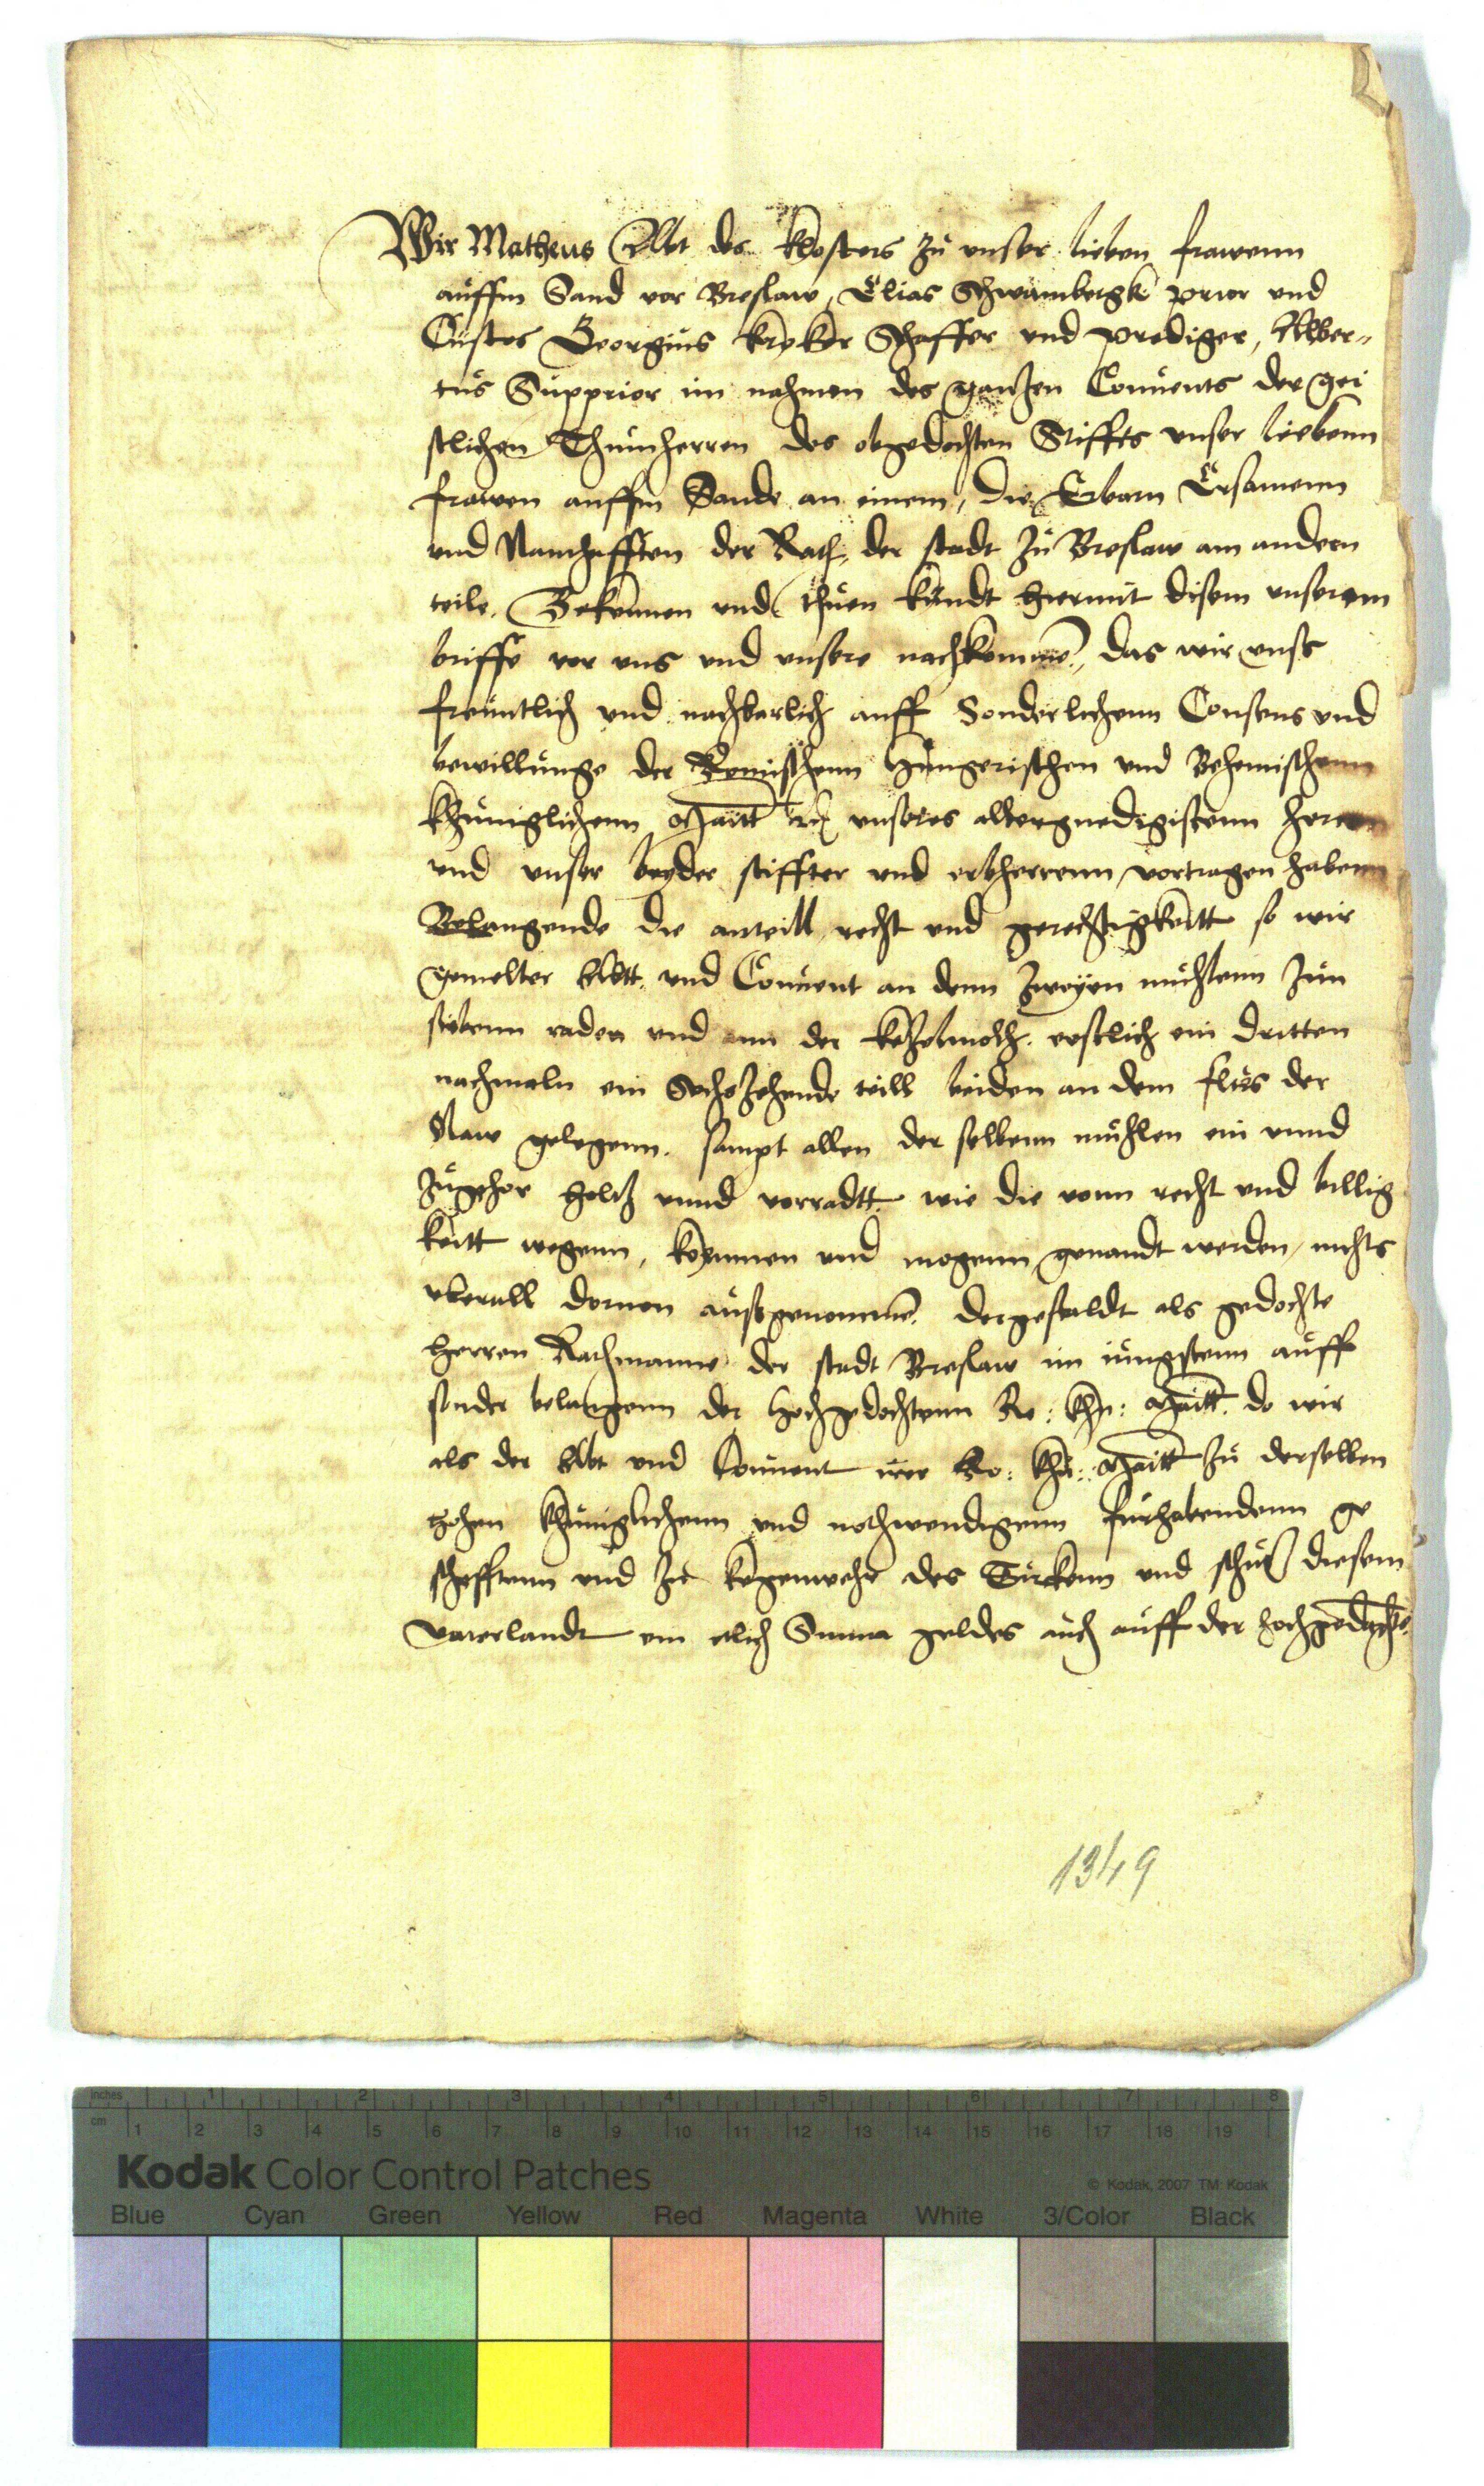 Wir Matheus Abt des klosters zu unser lieben frawenn
auffm Sand vor Breslaw, Elias Schwambergk prior und
Custos Georgius Kryker Schaffer und prediger, Alber-
tus Supprior im nahmen des ganzen Convents der gei
stlichen Thumherren des obgedochten Stiffts unser liebenn
frawen auffm Sande an einem, die Erbarn Ersamenn
und Namhafften der Rath der stadt zu Breslaw am andern
teile. Bekennen und thuen kundt hiermit disem unserem
briffe vor uns und unsere nachkomme, das wir unss
freuntlich und nachbarlich auff Sonderlichenn Consens und
bewillunge der Romischenn Hungerischen und Behemischenn
khuniglichenn Maitt rc unseres allergnedigistenn herrn
und unser beyder stiffter und erbherrenn vortragen habenn
Belangende die anteill recht und gerechtigkeitt so wir
gemelter Abtt und Convent an denn zweyen muhlenn zun
sibenn raden und ann der ketzelmolh erstlich ein dritten
nachmaln ein Sechszehende teill beiden an dem fluss der
Naw gelegenn. sampt allen der selbenn muhlen ein unnd
zugehor holtz unnd vorradtt wie die vonn recht und billig
keitt wegenn, koennen und mogenn genandt werden, nichts
uberall dornon aussgenomme. dergestaldt als gedochte
Herren Rathmanne der stadt Breslaw im iungstenn auff
sonder belangenn der hochgedochtenn Ro: khu: Maitt do wir
als der Abt und Convent irer Ro: khu: Maitt zu derselben
hohen khuniglichenn und nothwendigenn furhabendenn ge
schefftenn und zu kegenwehr des Turckenn und schutz diesem
vaterlandt ein etlich Summa geldes auch auff der hochgedochte
1349
Inches 1 2 3 4 5 6 7 8
cm 1 2 3 4 5 6 7 8 9 10 11 12 13 14 15 16 17 18 19
Kodak Color Control Patches
© Kodak, 2007 TM: Kodak
Blue Cyan Green Yellow Red Magenta White 3/Color Black